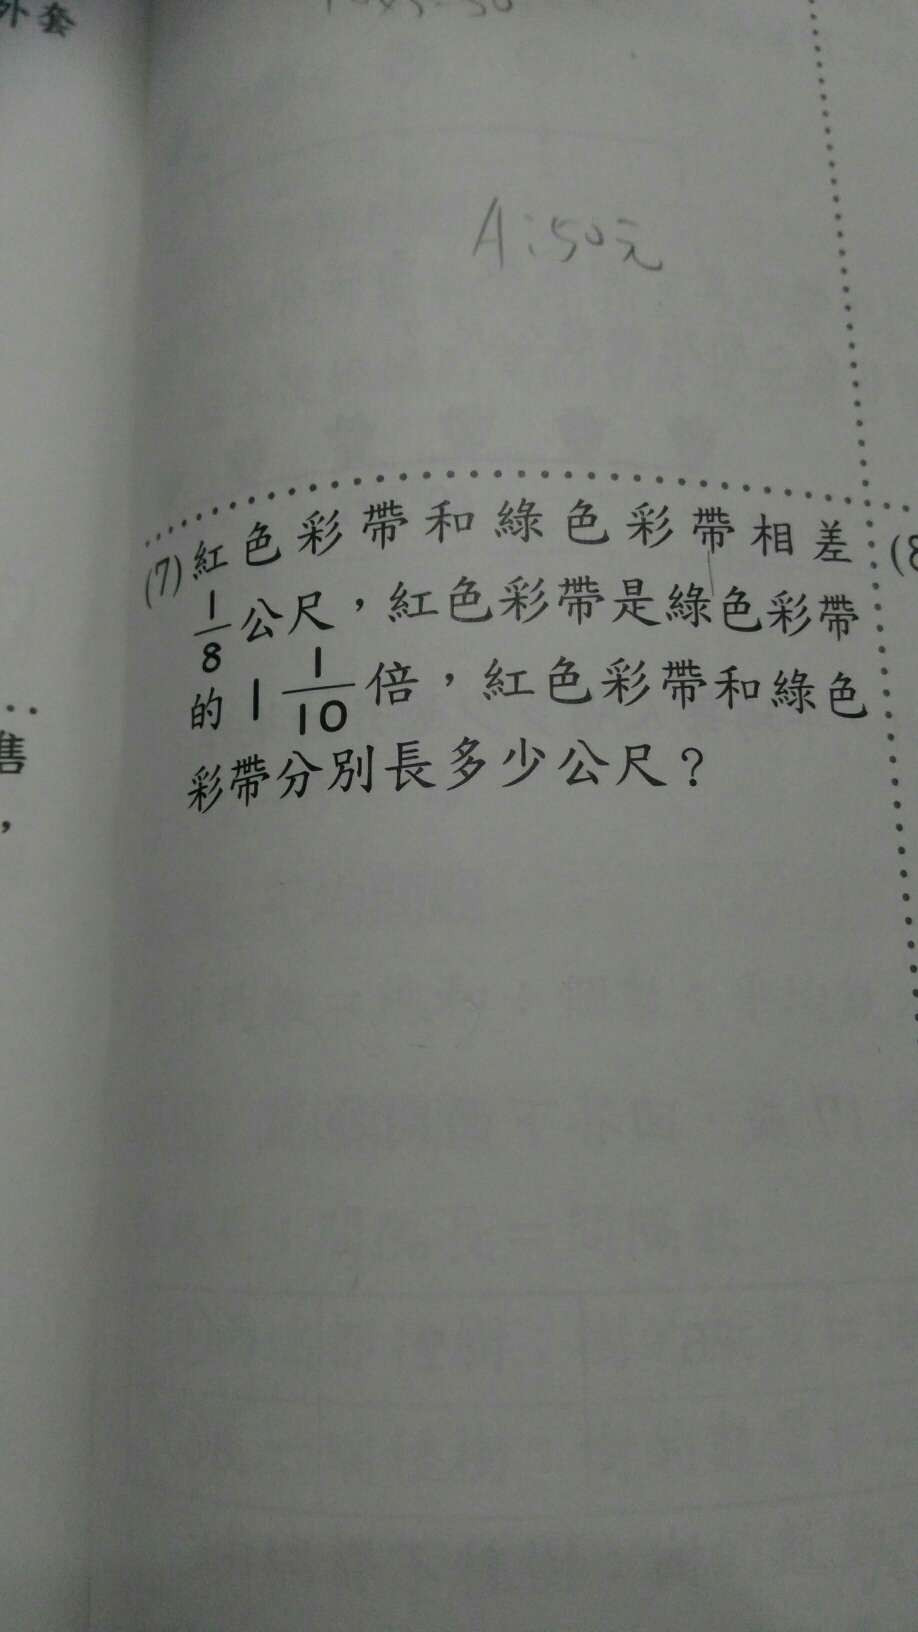 外套
A:50元
(7)紅色彩帶和綠色彩帶相差
1/8公尺，紅色彩帶是綠色彩帶
的1 1/10倍，紅色彩帶和綠色
彩帶分別長多少公尺？
(8
售
，